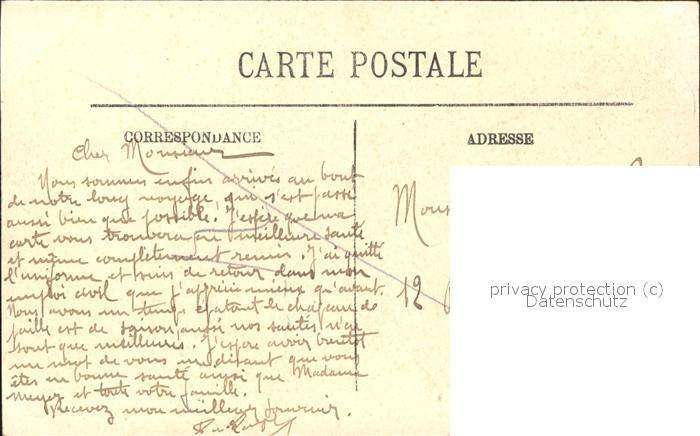 CARTE POSTALE
CORRESPONDANCE
ADRESSE
Cher Monsieur
Nous sommes enfin arrivés au bout
de notre long voyage, qui s'est passé
aussi bien que possible. J'espère que ma
carte vous trouvera en meilleure santé
et même complètement remis. J'ai quitté
l'uniforme et suis de retour dans mon
emploi civil que j'apprécie mieux qu'avant.
Nous avons un temps épatant le chapeau de
paille est de saison aussi nos santés n'en
sont que meilleures. J'espère avoir bientôt
un mot de vous me disant que vous
êtes en bonne santé ainsi que Madame
Meyer et toute votre famille.
Recevez mon meilleur souvenir.
Mons
12
privacy protection (c)
Datenschutz